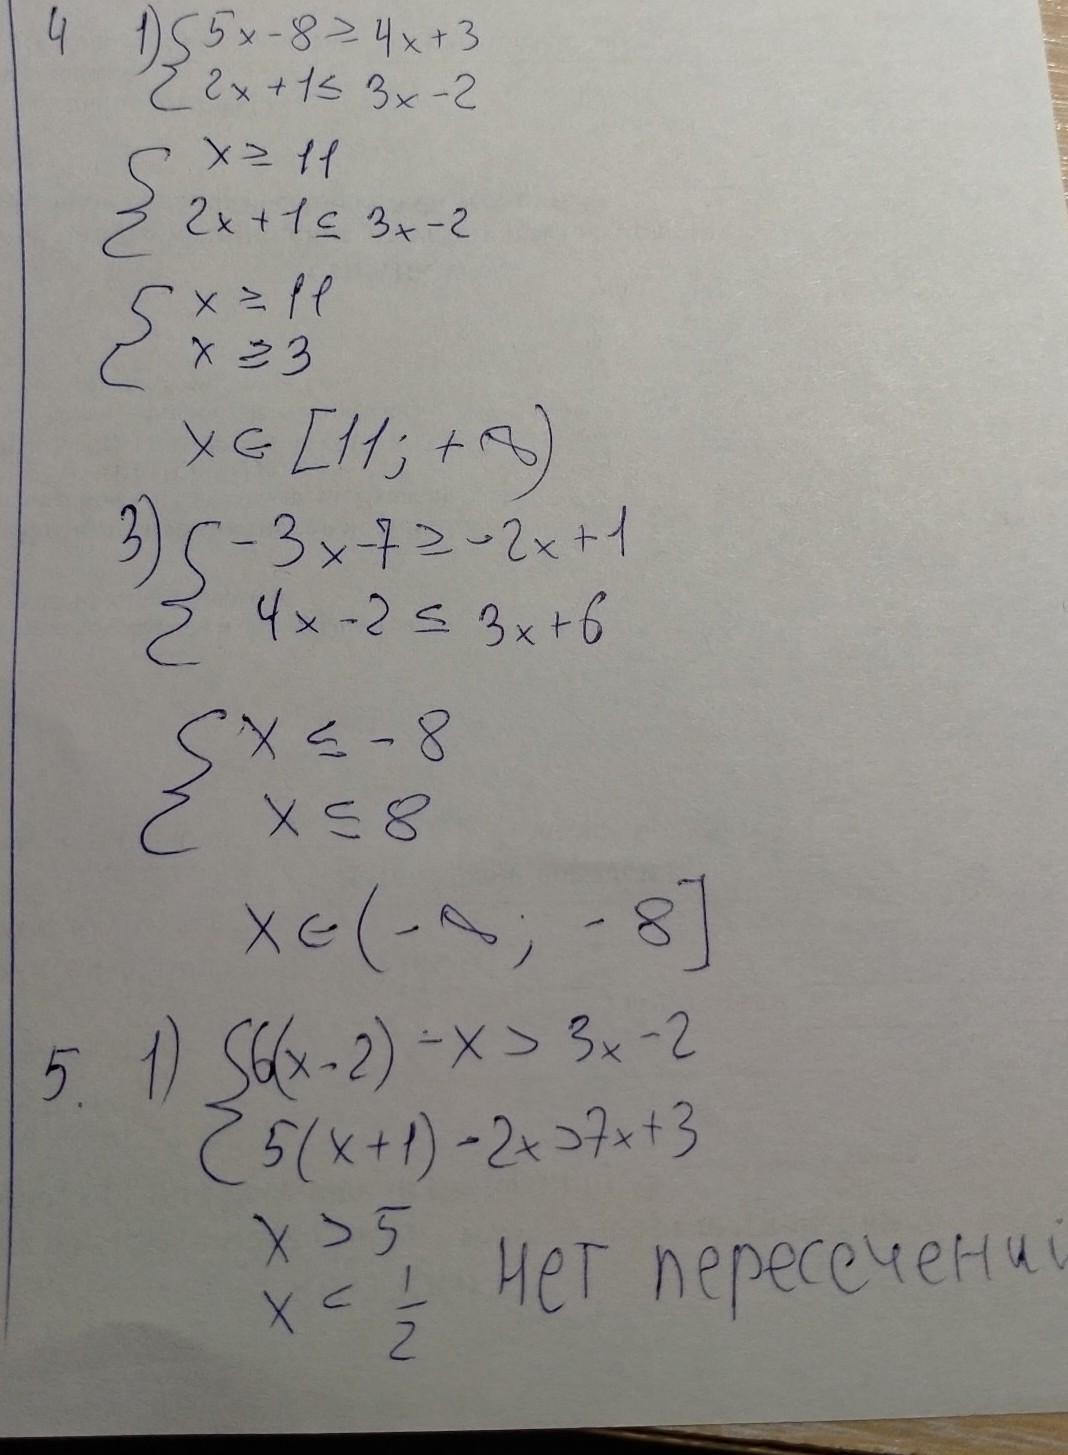 4 1) { 5x - 8 ≥ 4x + 3
2x + 1 ≤ 3x - 2
{ x ≥ 11
2x + 1 ≤ 3x - 2
{ x ≥ 11
x ≥ 3
x ∈ [11; +∞)
3) { -3x - 7 ≥ -2x + 1
4x - 2 ≤ 3x + 6
{ x ≤ -8
x ≤ 8
x ∈ (-∞; -8]
5. 1) { 6(x - 2) - x > 3x - 2
5(x + 1) - 2x > 7x + 3
x > 5
x < 1/2 нет пересечений